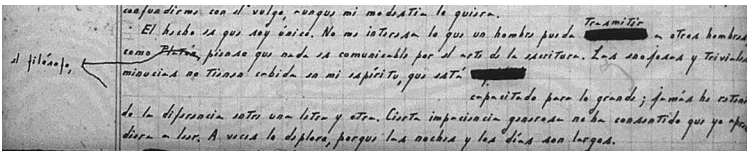 confundirme con el vulgo, aunque mi modestia lo quiera.
El hecho es que soy único. No me interesa lo que un hombre pueda transmitir a otros hombres
como Platón, pienso que nada es comunicable por el arte de la escritura. Las enojosas y triviales
el filósofo,
minucias no tienen cabida en mi espíritu, que está
capacitado para lo grande; jamás he reteni
de la diferencia entre una letra y otra. Cierta impaciencia generosa no ha consentido que yo apren
diera a leer. A veces lo deploro, porque las noches y los días son largos.